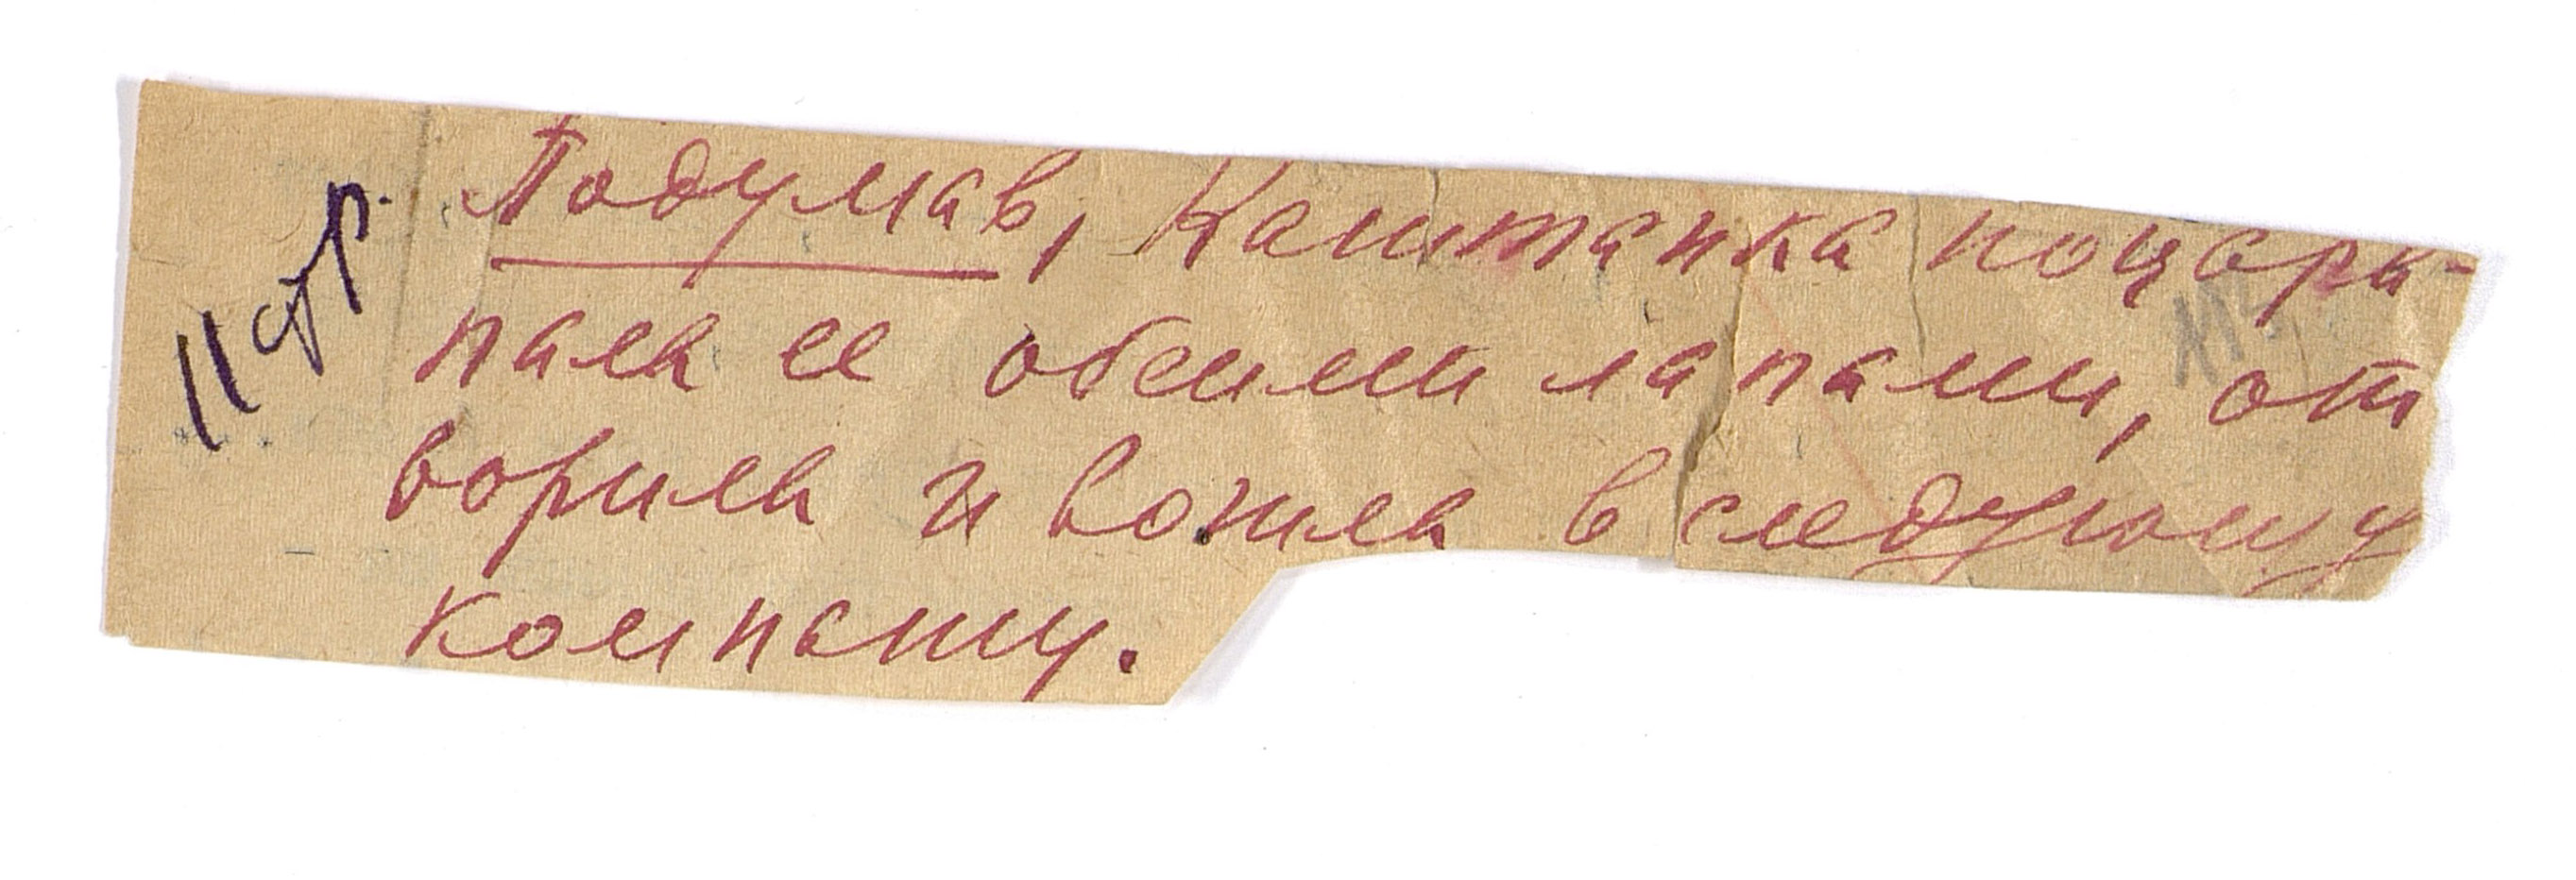 11 стр.
Подумав, Каштанка поцара-
пала ее обеими лапами, от
ворила и вошла в следующу
комнату.